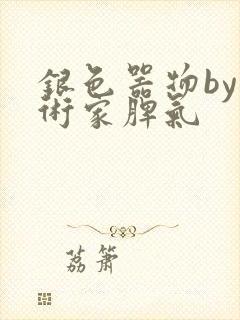 銀色器物by
術家脾氣
荔簫